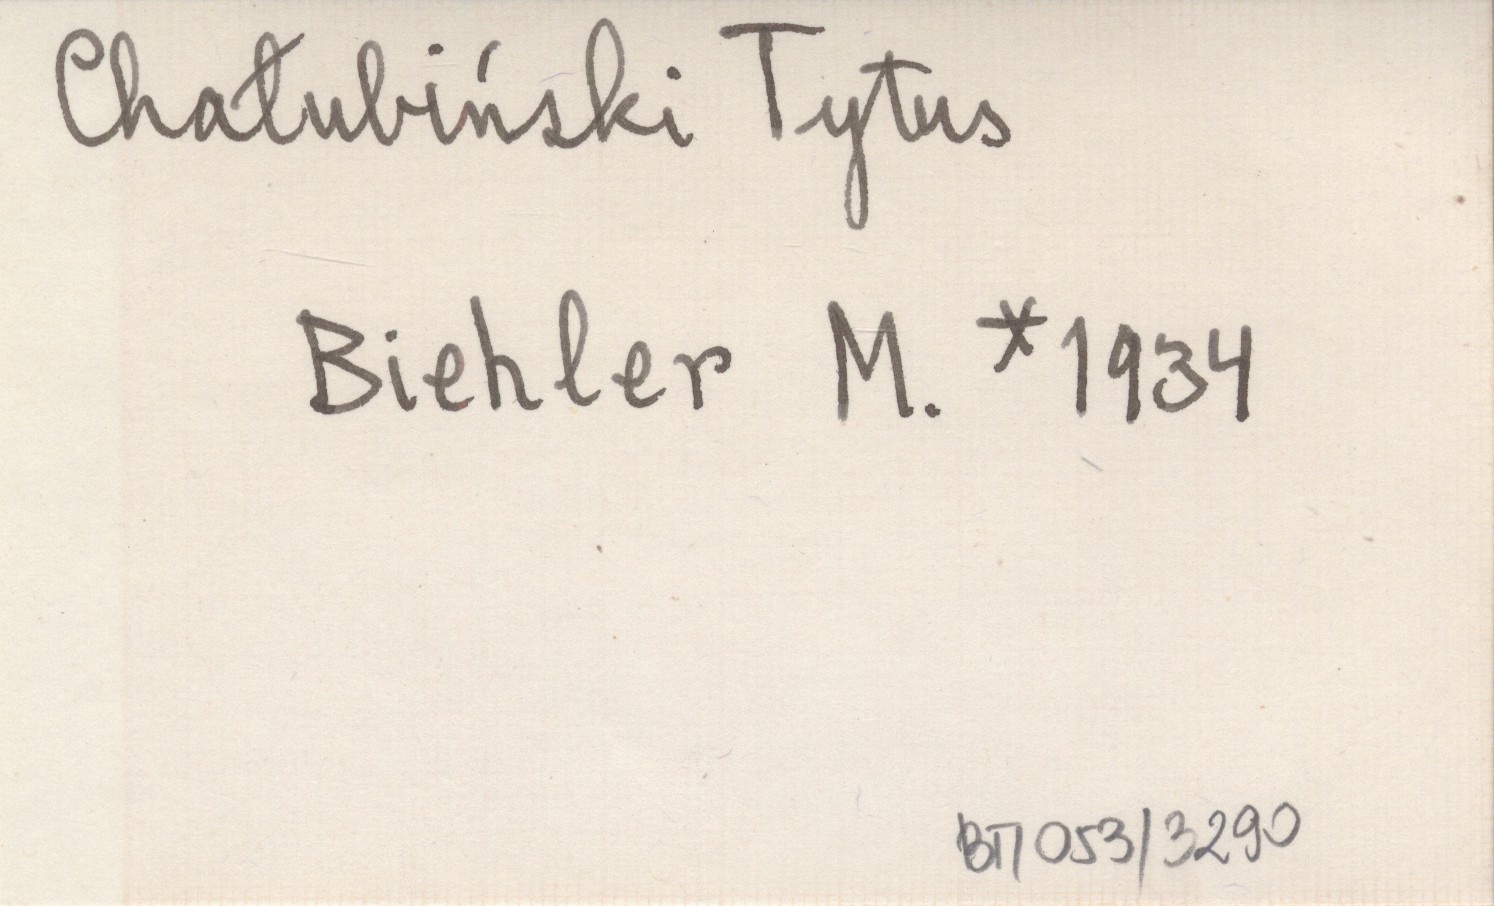 Chałubiński Tytus
Biehler M. *1934
ВП 053/3290